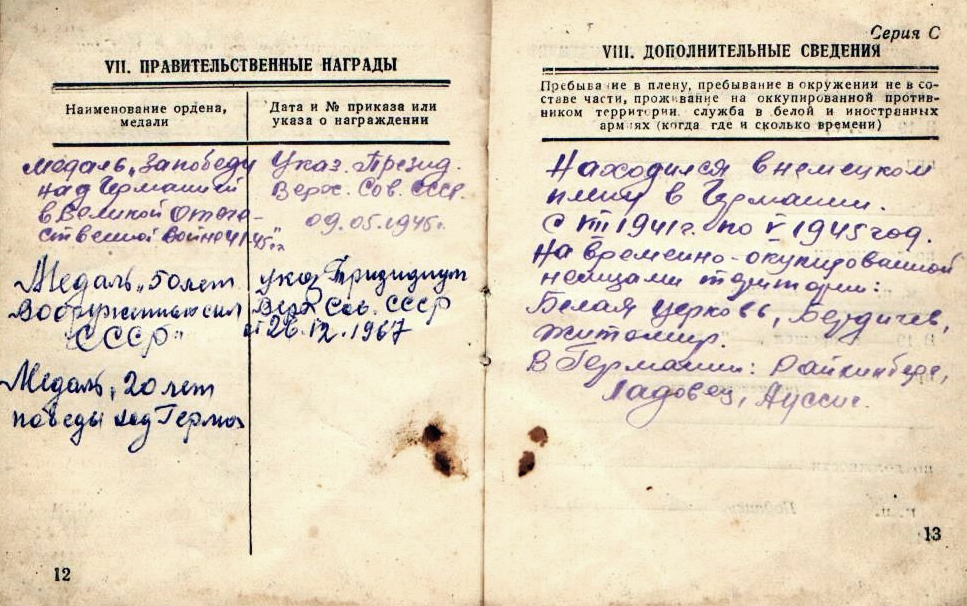 VII. ПРАВИТЕЛЬСТВЕННЫЕ НАГРАДЫ
Наименование ордена,
медали
Дата и № приказа или
указа о награждении
Медаль „За победу
над Германией
в Великой Отече-
ственной войне 41-45 г.г."
Указ. Презид.
Верх. Сов. СССР.
09.05.1945г.
Медаль „50 лет
Вооруженных сил
СССР"
указ Призидиум
Верх Сов. СССР
от 26.12.1967
Медаль, 20 лет
победы над Герман
12
Серия С
VIII. ДОПОЛНИТЕЛЬНЫЕ СВЕДЕНИЯ
Пребывание в плену, пребывание в окружении не в со-
ставе части, проживание на оккупированной против-
ником территории, служба в белой и иностранных
армиях (когда где и сколько времени)
Находился в немецком
плену в Германии.
с VIII 1941г. по V 1945 год.
На временно-окупированной
немцами територии:
Белая церковь, Бердичев,
Житомир.
В Германии: Райхинберг,
Ладовец, Ауссиг.
13